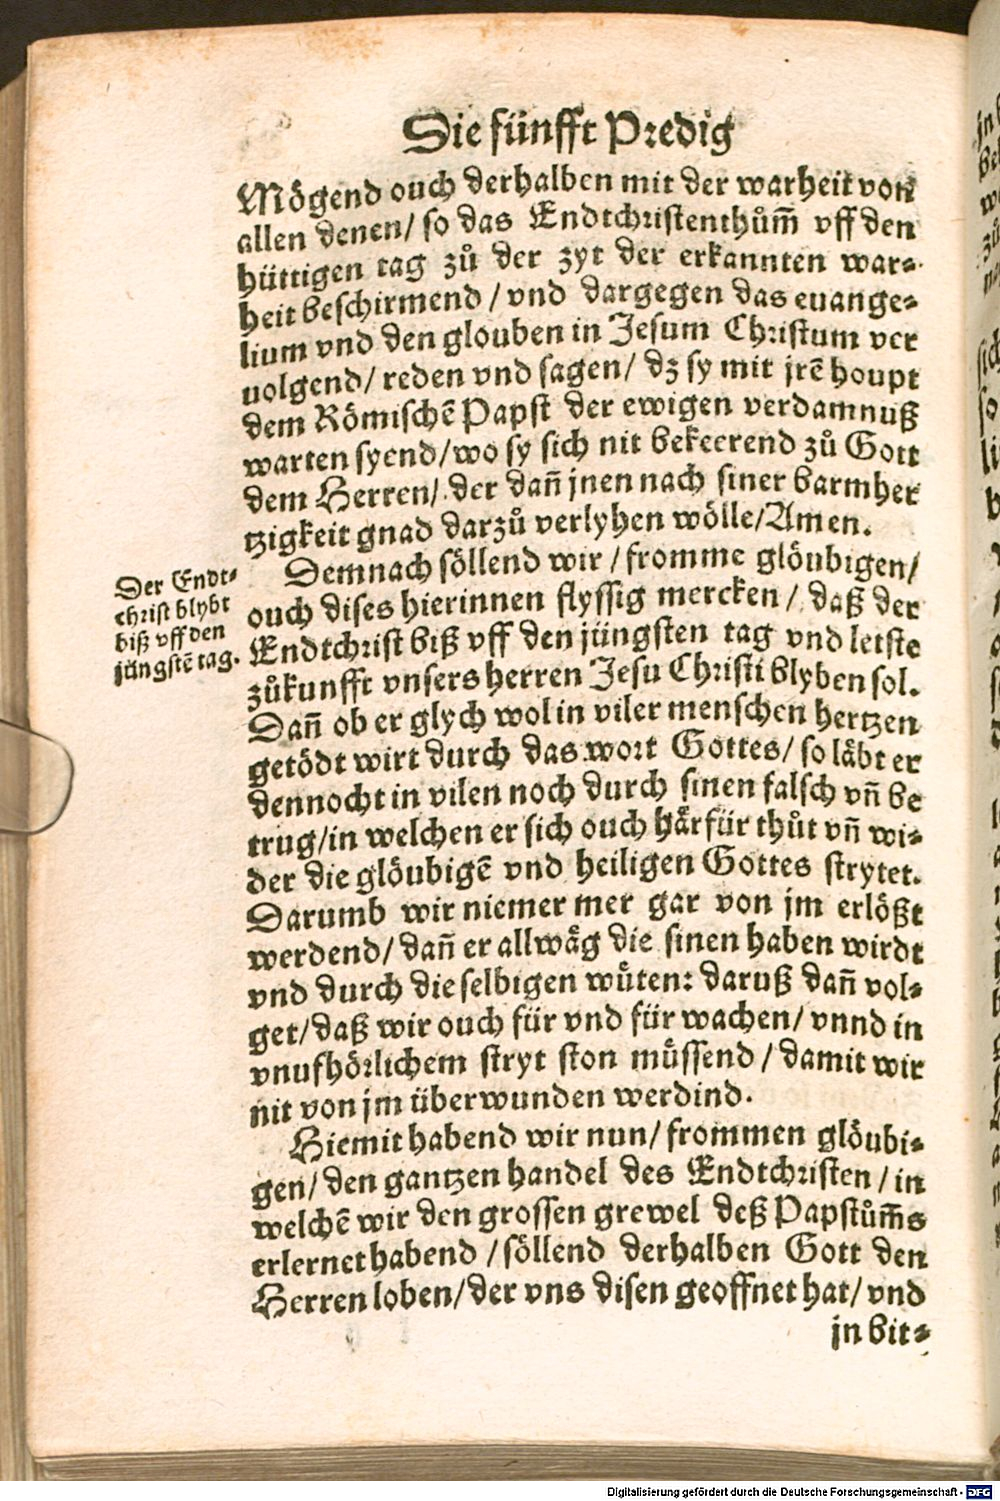 Die fünfft Predig
Mögend ouch derhalben mit der warheit von
allen denen/ so das Endtchristenthům̃ vff den
hüttigen tag zů der zyt der erkannten war⸗
heit beschirmend / vnd dargegen das euange⸗
lium vnd den glouben in Jesum Christum ver
uolgend/ reden vnd sagen/ dz sy mit jrē houpt
dem Römischē Papst der ewigen verdamnuß
warten syend/ wo sy sich nit bekeerend zů Gott
dem Herren/ der dañ jnen nach siner barmher
tzigkeit gnad darzů verlyhen wölle/ Amen.
Demnach söllend wir / fromme glöubigen/
Der Endt⸗
christ blybt
biß vff den
jüngstē tag.
ouch dises hierinnen flyssig mercken / daß der
Endtchrist biß vff den jüngsten tag vnd letste
zůkunfft vnsers herren Jesu Christi blyben sol.
Dañ ob er glych wol in viler menschen hertzen
getödt wirt durch das wort Gottes/ so läbt er
dennocht in vilen noch durch sinen falsch vñ be
trug/ in welchen er sich ouch härfür thůt vñ wi⸗
der die glöubigē vnd heiligen Gottes strytet.
Darumb wir niemer mer gar von jm erlößt
werdend/ dañ er allwäg die sinen haben wirdt
vnd durch die selbigen wüten: daruß dañ vol⸗
get/ daß wir ouch für vnd für wachen/ vnnd in
vnufhörlichem stryt ston müssend / damit wir
nit von jm überwunden werdind.
Hiemit habend wir nun/ frommen glöubi⸗
gen/ den gantzen handel des Endtchristen / in
welchē wir den grossen grewel deß Papstům̃s
erlernet habend / söllend derhalben Gott den
Herren loben/ der vns disen geoffnet hat/ vnd
jn bit⸗
Digitalisierung gefördert durch die Deutsche Forschungsgemeinschaft - DFG